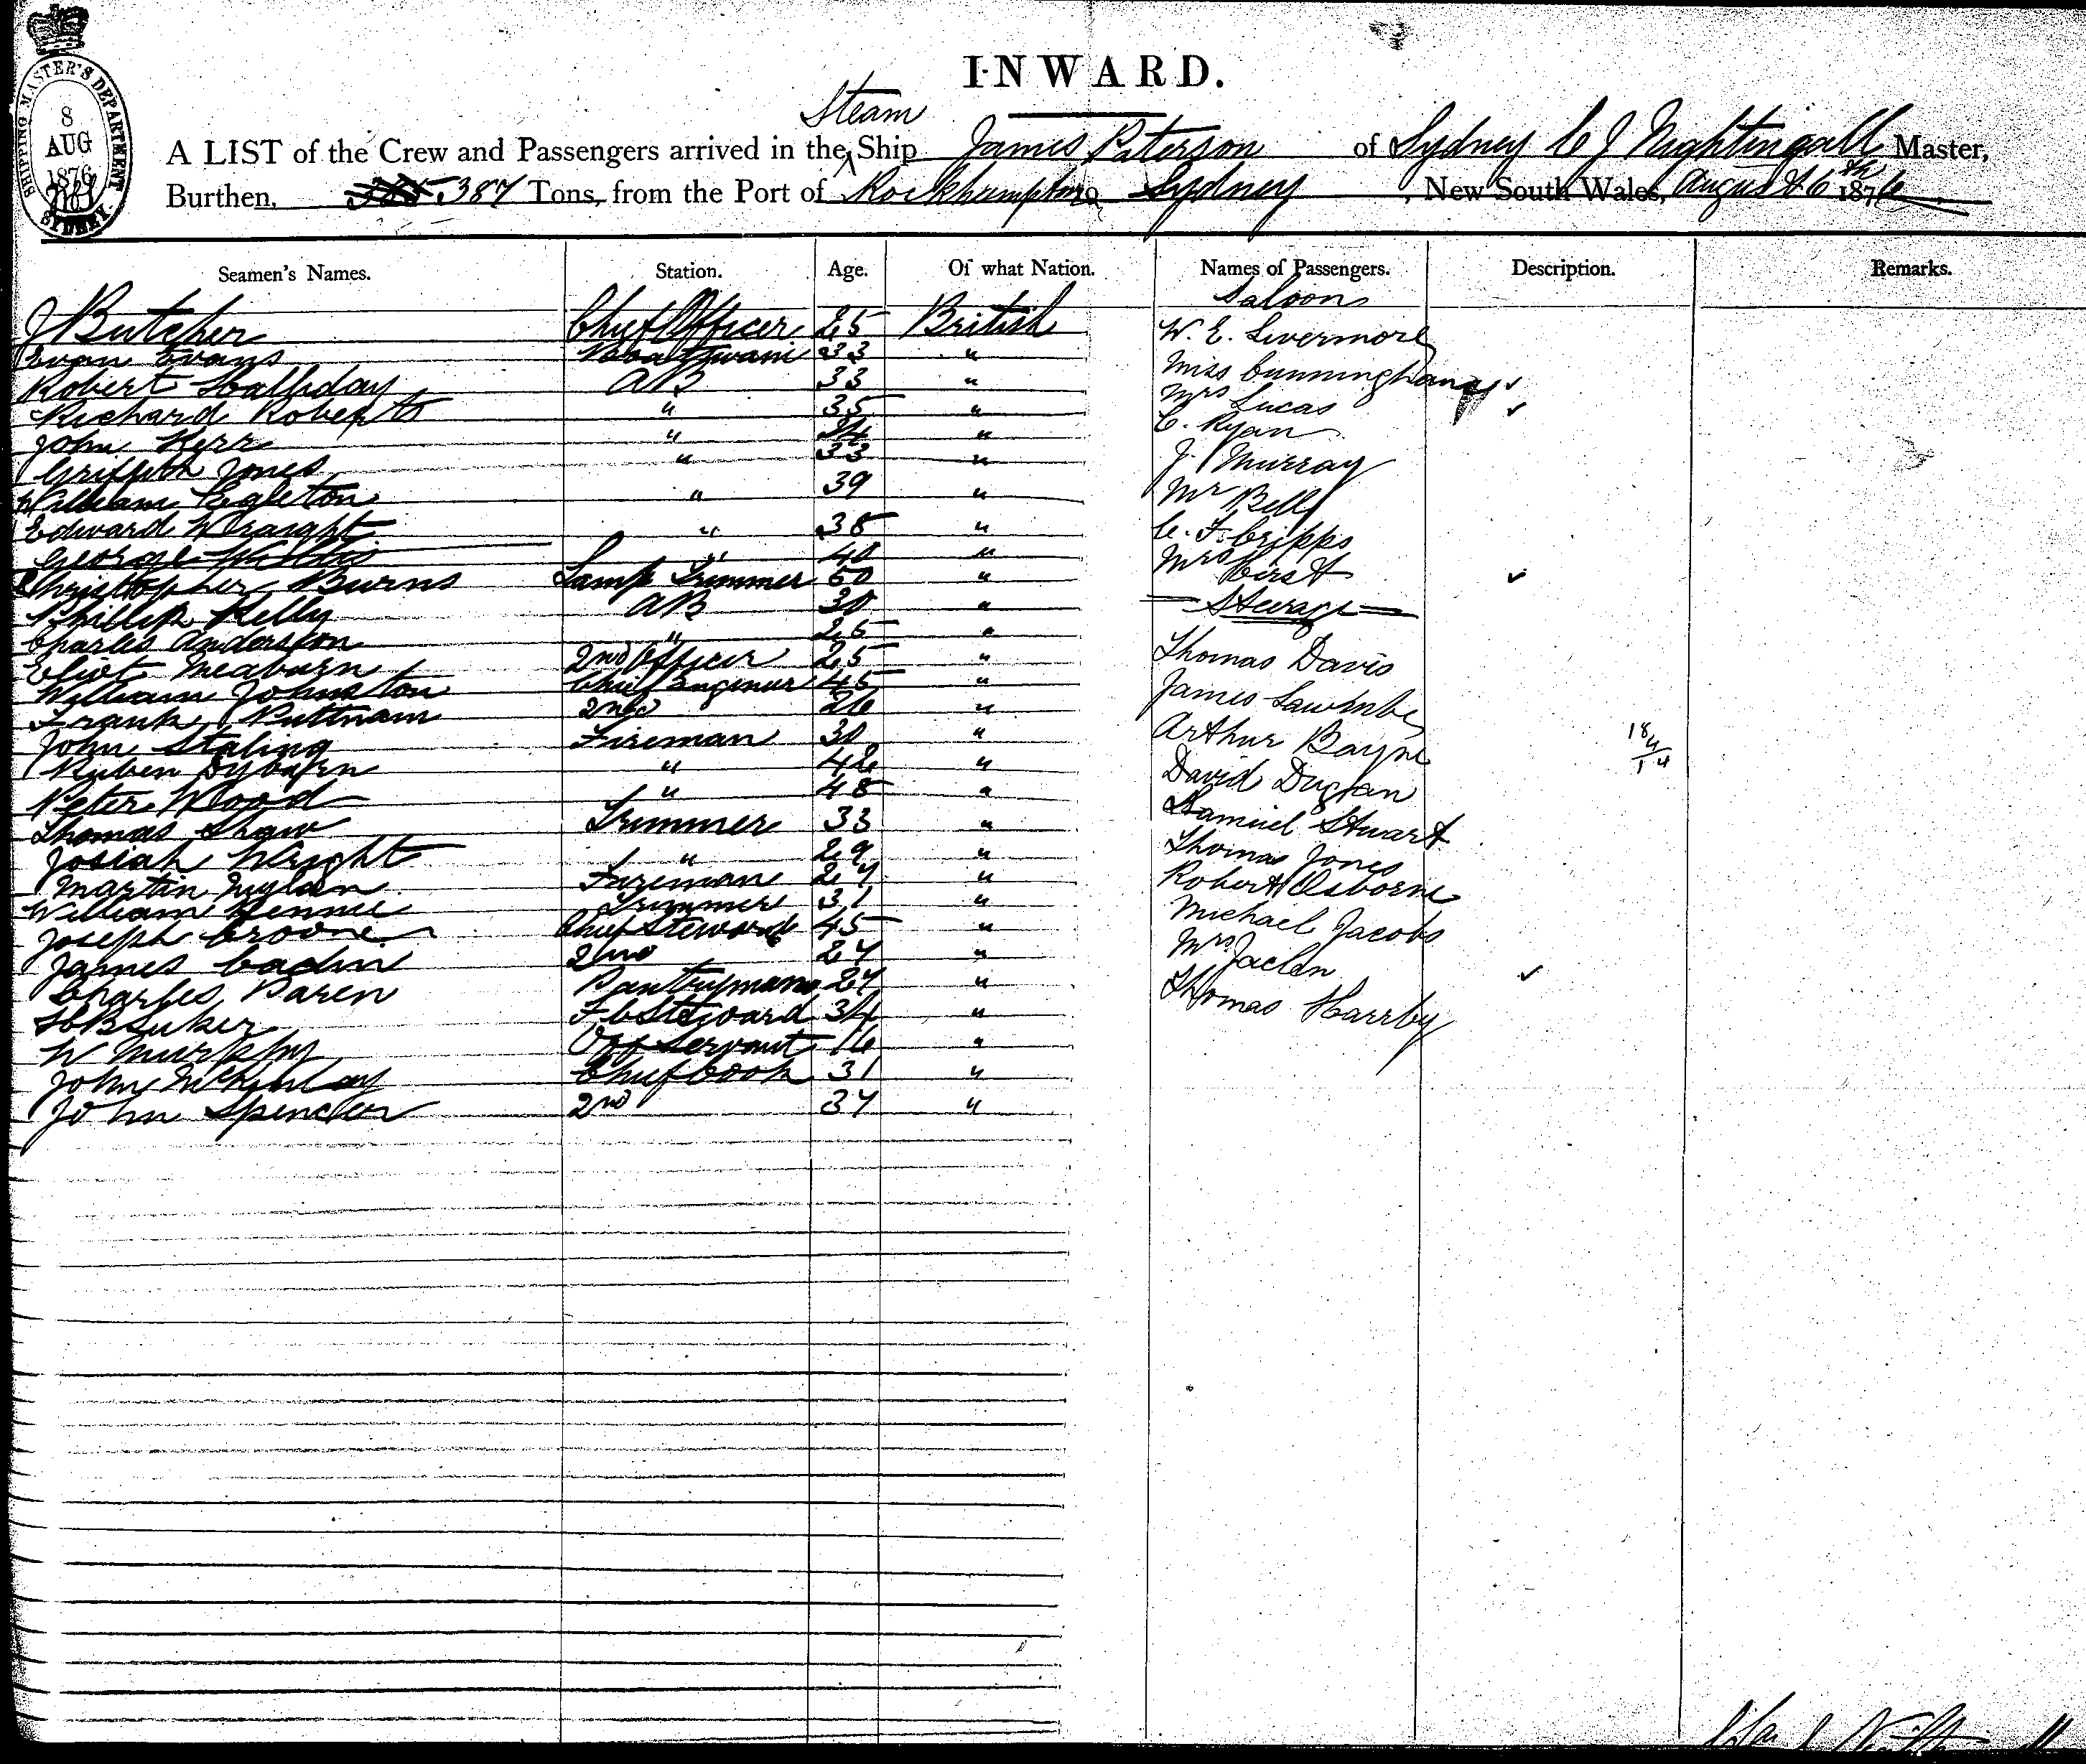 SHIPPING MASTER'S DEPARTMENT
8
AUG
1876
SYDNEY
INWARD.
Steam
A LIST of the Crew and Passengers arrived in the Ship James Paterson of Sydney C J Nightingall Master,
Burthen, 387 Tons, from the Port of Rockhampton Sydney, New South Wales, August 6th 1876
Seamen's Names. Station. Age. Of what Nation. Names of Passengers. Description. Remarks.
Saloon
J Butcher Chief Officer 25 British W. E. Livermore
Evan Evans Boatswain 33 " Miss Cunningham
Robert Halliday AB 33 " Mrs Lucas
Richard Roberts " 35 " C. Ryan
John Kerr " 34 " J Murray
Griffith Jones " 33 "
William Egleton " 39 " Mr Bell
Edward Wraight " 38 " C. F. Cripps
George " 40 " Mrs Hirst
Christopher Burns Lamp Trimmer 50 "
Phillip Kelly AB 30 " Steerage
Charles Anderson " 25 "
Eliot Meaburn 2nd Officer 25 " Thomas Davis
William Johnston Chief Engineer 45 " James
Frank Puttnam 2nd 26 " Arthur Bayne
John Staling Fireman 30 " 18/4
14
Ruben " 42 " David Dugan
Peter Wood " 48 " Samuel Stuart
Thomas Shaw Trimmer 33 "
Josiah Wright " 29 " Thomas Jones
Martin Fireman 27 " Robert Osborne
William Rennie Trimmer 31 " Michael Jacobs
Joseph Chief Steward 45 "
James 2nd 27 " Mrs
Charles Baren Pantryman 27 " Thomas Harrby
H B Suker F C Steward 34 "
W Murphy Off Servant 16 "
John McKinlay Chief Cook 31 "
John Spencer 2nd 37 "